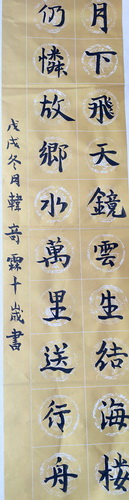 月下飛天鏡雲生結海樓
仍憐故鄉水萬里送行舟
戊戌冬月韓奇霖十歲書